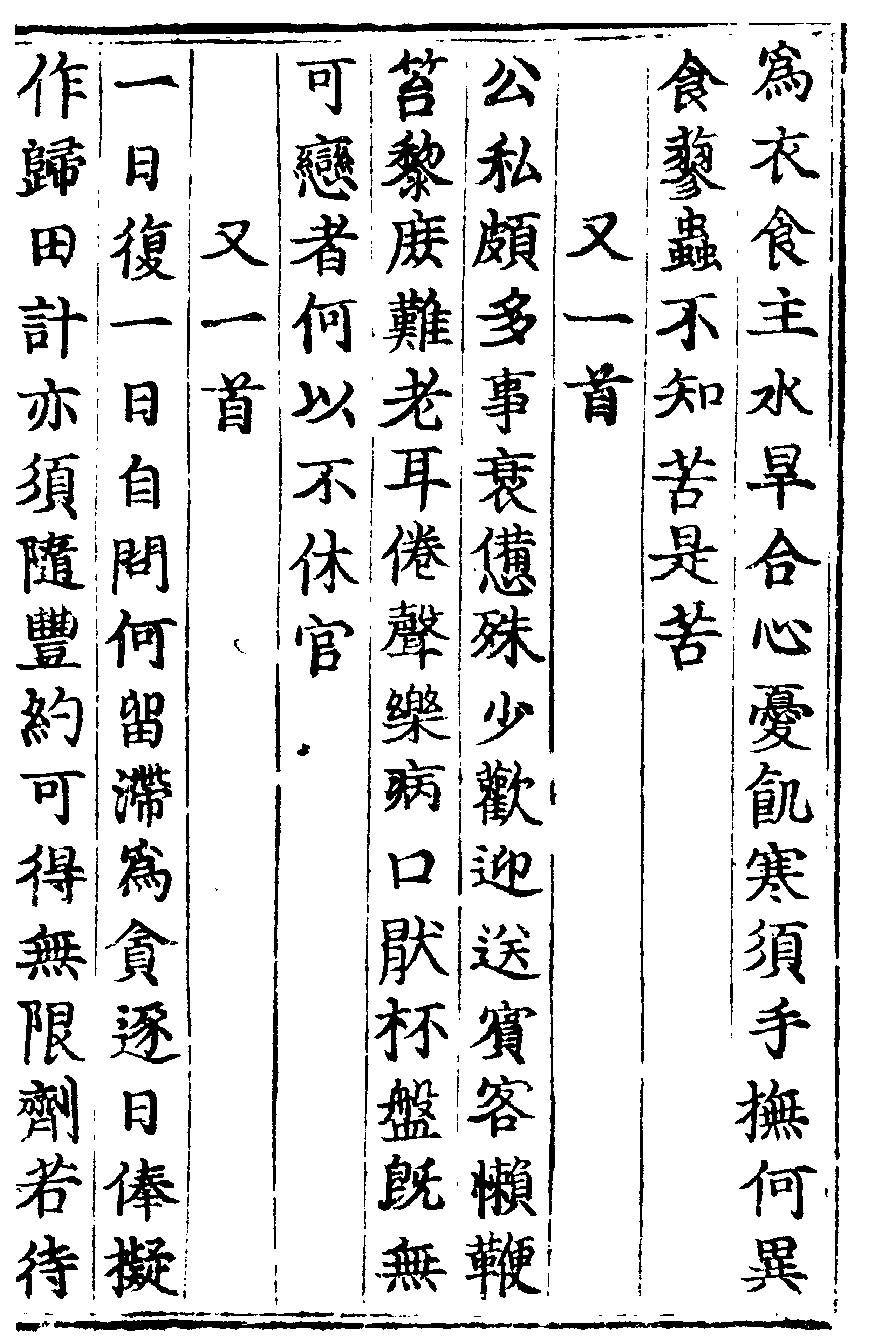 為衣食主水旱合心憂飢寒須手撫何異
食蓼蟲不知苦是苦
又一首
公私頗多事衰憊殊少歡迎送賓客懶鞭
笞黎庶難老耳倦聲樂病口猒杯盤既無
可戀者何以不休官
又一首
一日復一日自問何留滯為貪逐日俸擬
作歸田計亦須隨豐約可得無限劑若待